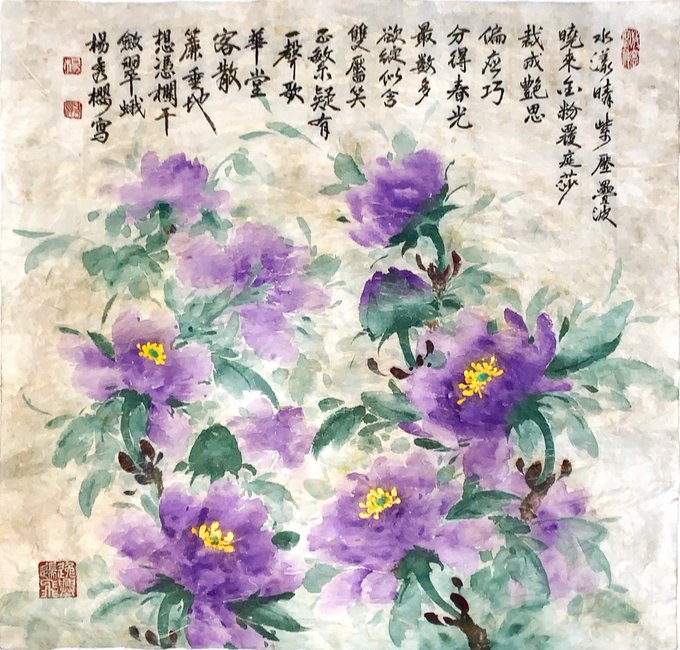 水漾晴紫壓疊波
曉來金粉覆庭莎
裁成艷思
偏应巧
分得春光
最數多
欲綻似含
雙靨笑
正繁疑有
一聲歌
華堂
客散
簾垂地
想憑欄干
斂翠蛾
楊秀櫻寫